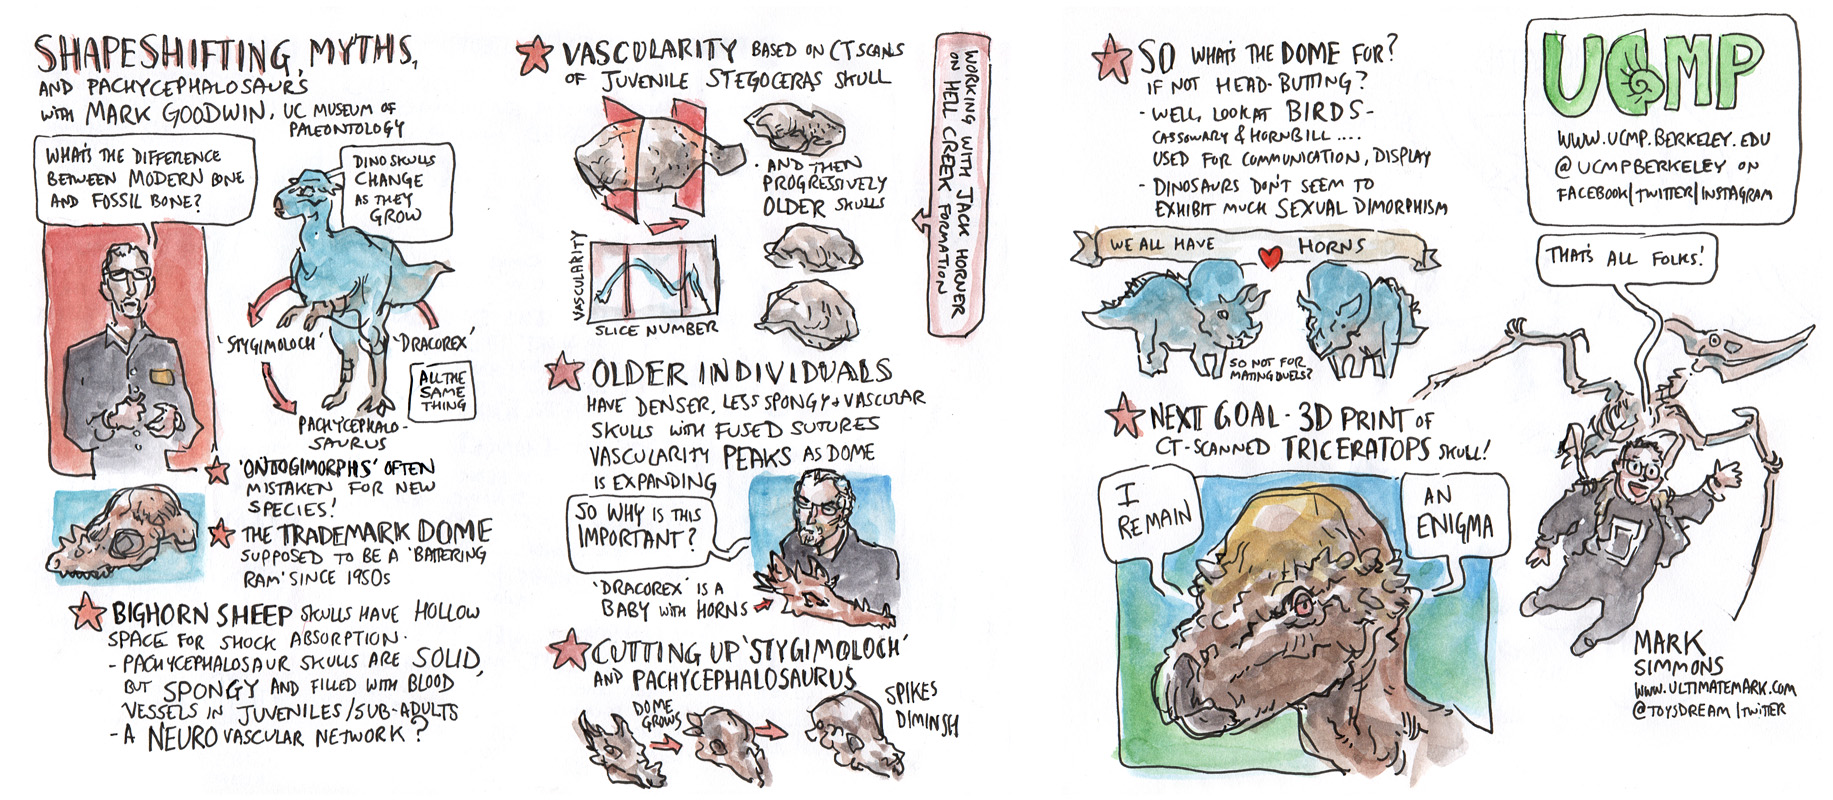 SHAPESHIFTING, MYTHS,
AND PACHYCEPHALOSAURS
WITH MARK GOODWIN, UC MUSEUM OF
PALEONTOLOGY
WHAT'S THE DIFFERENCE
BETWEEN MODERN BONE
AND FOSSIL BONE?
DINO SKULLS
CHANGE
AS THEY
GROW
'STYGIMOLOCH'
'DRACOREX'
ALL THE
SAME
THING
PACHYCEPHALO-
SAURUS
'ONTOGIMORPHS' OFTEN
MISTAKEN FOR NEW
SPECIES!
THE TRADEMARK DOME
SUPPOSED TO BE A 'BATTERING
RAM' SINCE 1950s
BIGHORN SHEEP SKULLS HAVE HOLLOW
SPACE FOR SHOCK ABSORPTION.
- PACHYCEPHALOSAUR SKULLS ARE SOLID,
BUT SPONGY AND FILLED WITH BLOOD
VESSELS IN JUVENILES/SUB-ADULTS
- A NEUROVASCULAR NETWORK?
VASCULARITY BASED ON CT SCANS
OF JUVENILE STEGOCERAS SKULL
• AND THEN
PROGRESSIVELY
OLDER SKULLS
VASCULARITY
SLICE NUMBER
WORKING WITH JACK HORNER
ON HELL CREEK FORMATION
OLDER INDIVIDUALS
HAVE DENSER, LESS SPONGY + VASCULAR
SKULLS WITH FUSED SUTURES
VASCULARITY PEAKS AS DOME
IS EXPANDING
SO WHY IS THIS
IMPORTANT?
'DRACOREX' IS A
BABY WITH HORNS
CUTTING UP 'STYGIMOLOCH'
AND PACHYCEPHALOSAURUS
DOME
GROWS
SPIKES
DIMINSH
SO WHAT'S THE DOME FOR?
IF NOT HEAD-BUTTING?
- WELL, LOOK AT BIRDS -
CASSOWARY & HORNBILL....
USED FOR COMMUNICATION, DISPLAY
- DINOSAURS DON'T SEEM TO
EXHIBIT MUCH SEXUAL DIMORPHISM
WE ALL HAVE HORNS
SO NOT FOR
MATING DUELS?
NEXT GOAL - 3D PRINT OF
CT-SCANNED TRICERATOPS SKULL!
I
REMAIN
AN
ENIGMA
UCMP
WWW.UCMP.BERKELEY.EDU
@UCMPBERKELEY ON
FACEBOOK/TWITTER/INSTAGRAM
THAT'S ALL FOLKS!
MARK
SIMMONS
WWW.ULTIMATEMARK.COM
@TOYSDREAM/TWITTER